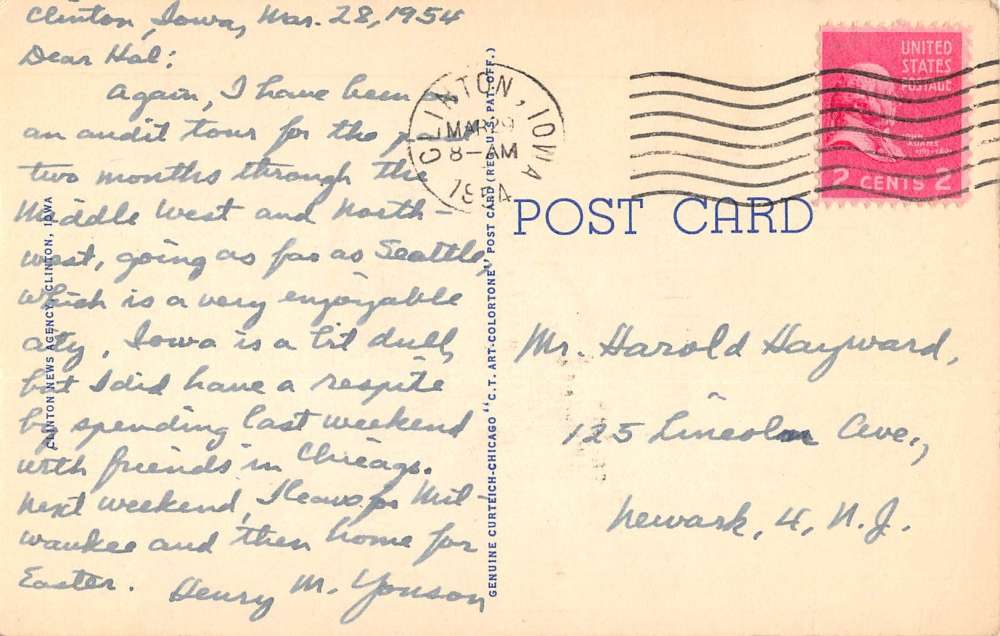 Clinton, Iowa, Mar. 28, 1954
Dear Hal:
Again, I have been on
an audit tour for the past
two months through the
Middle West and North-
west, going as far as Seattle,
which is a very enjoyable
city, Iowa is a bit dull,
but I did have a respite
by spending last weekend
with friends in Chicago.
Next weekend, I leave for Mil-
waukee and then home for
Easter.
Henry M. Yonson
CLINTON NEWS AGENCY, CLINTON, IOWA
GENUINE CURTEICH-CHICAGO "C.T. ART-COLORTONE" POST CARD (REG. U.S. PAT. OFF.)
CLINTON, IOWA
MAR
8-AM
1954
UNITED
STATES
POSTAGE
JOHN
ADAMS
2 CENTS 2
POST CARD
Mr. Harold Hayward,
125 Lincoln Ave.,
Newark, 4, N.J.